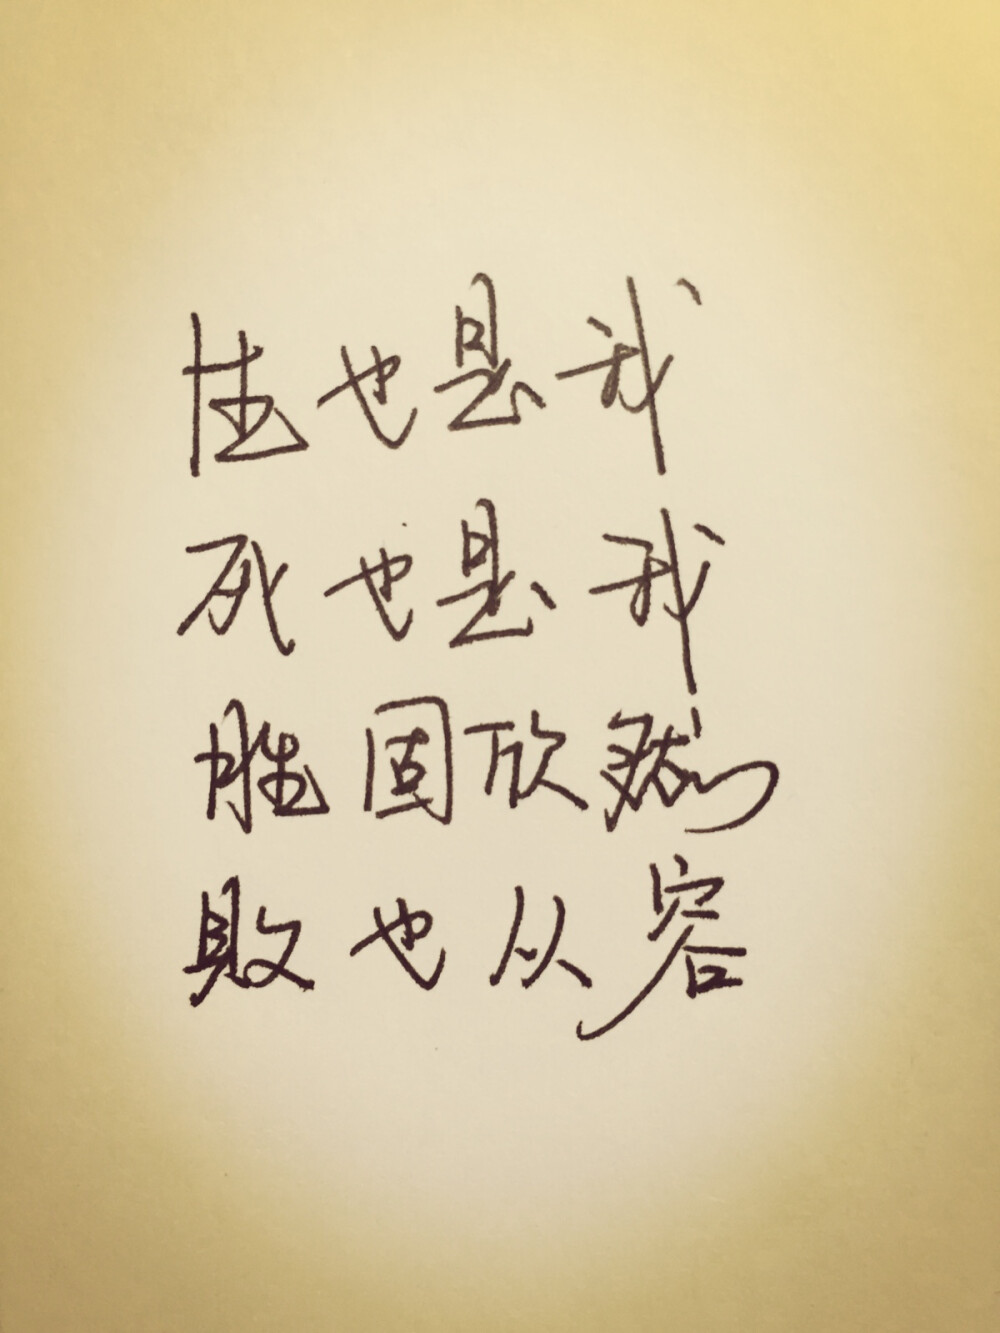 生也是我
死也是我
胜固欣然
敗也从容